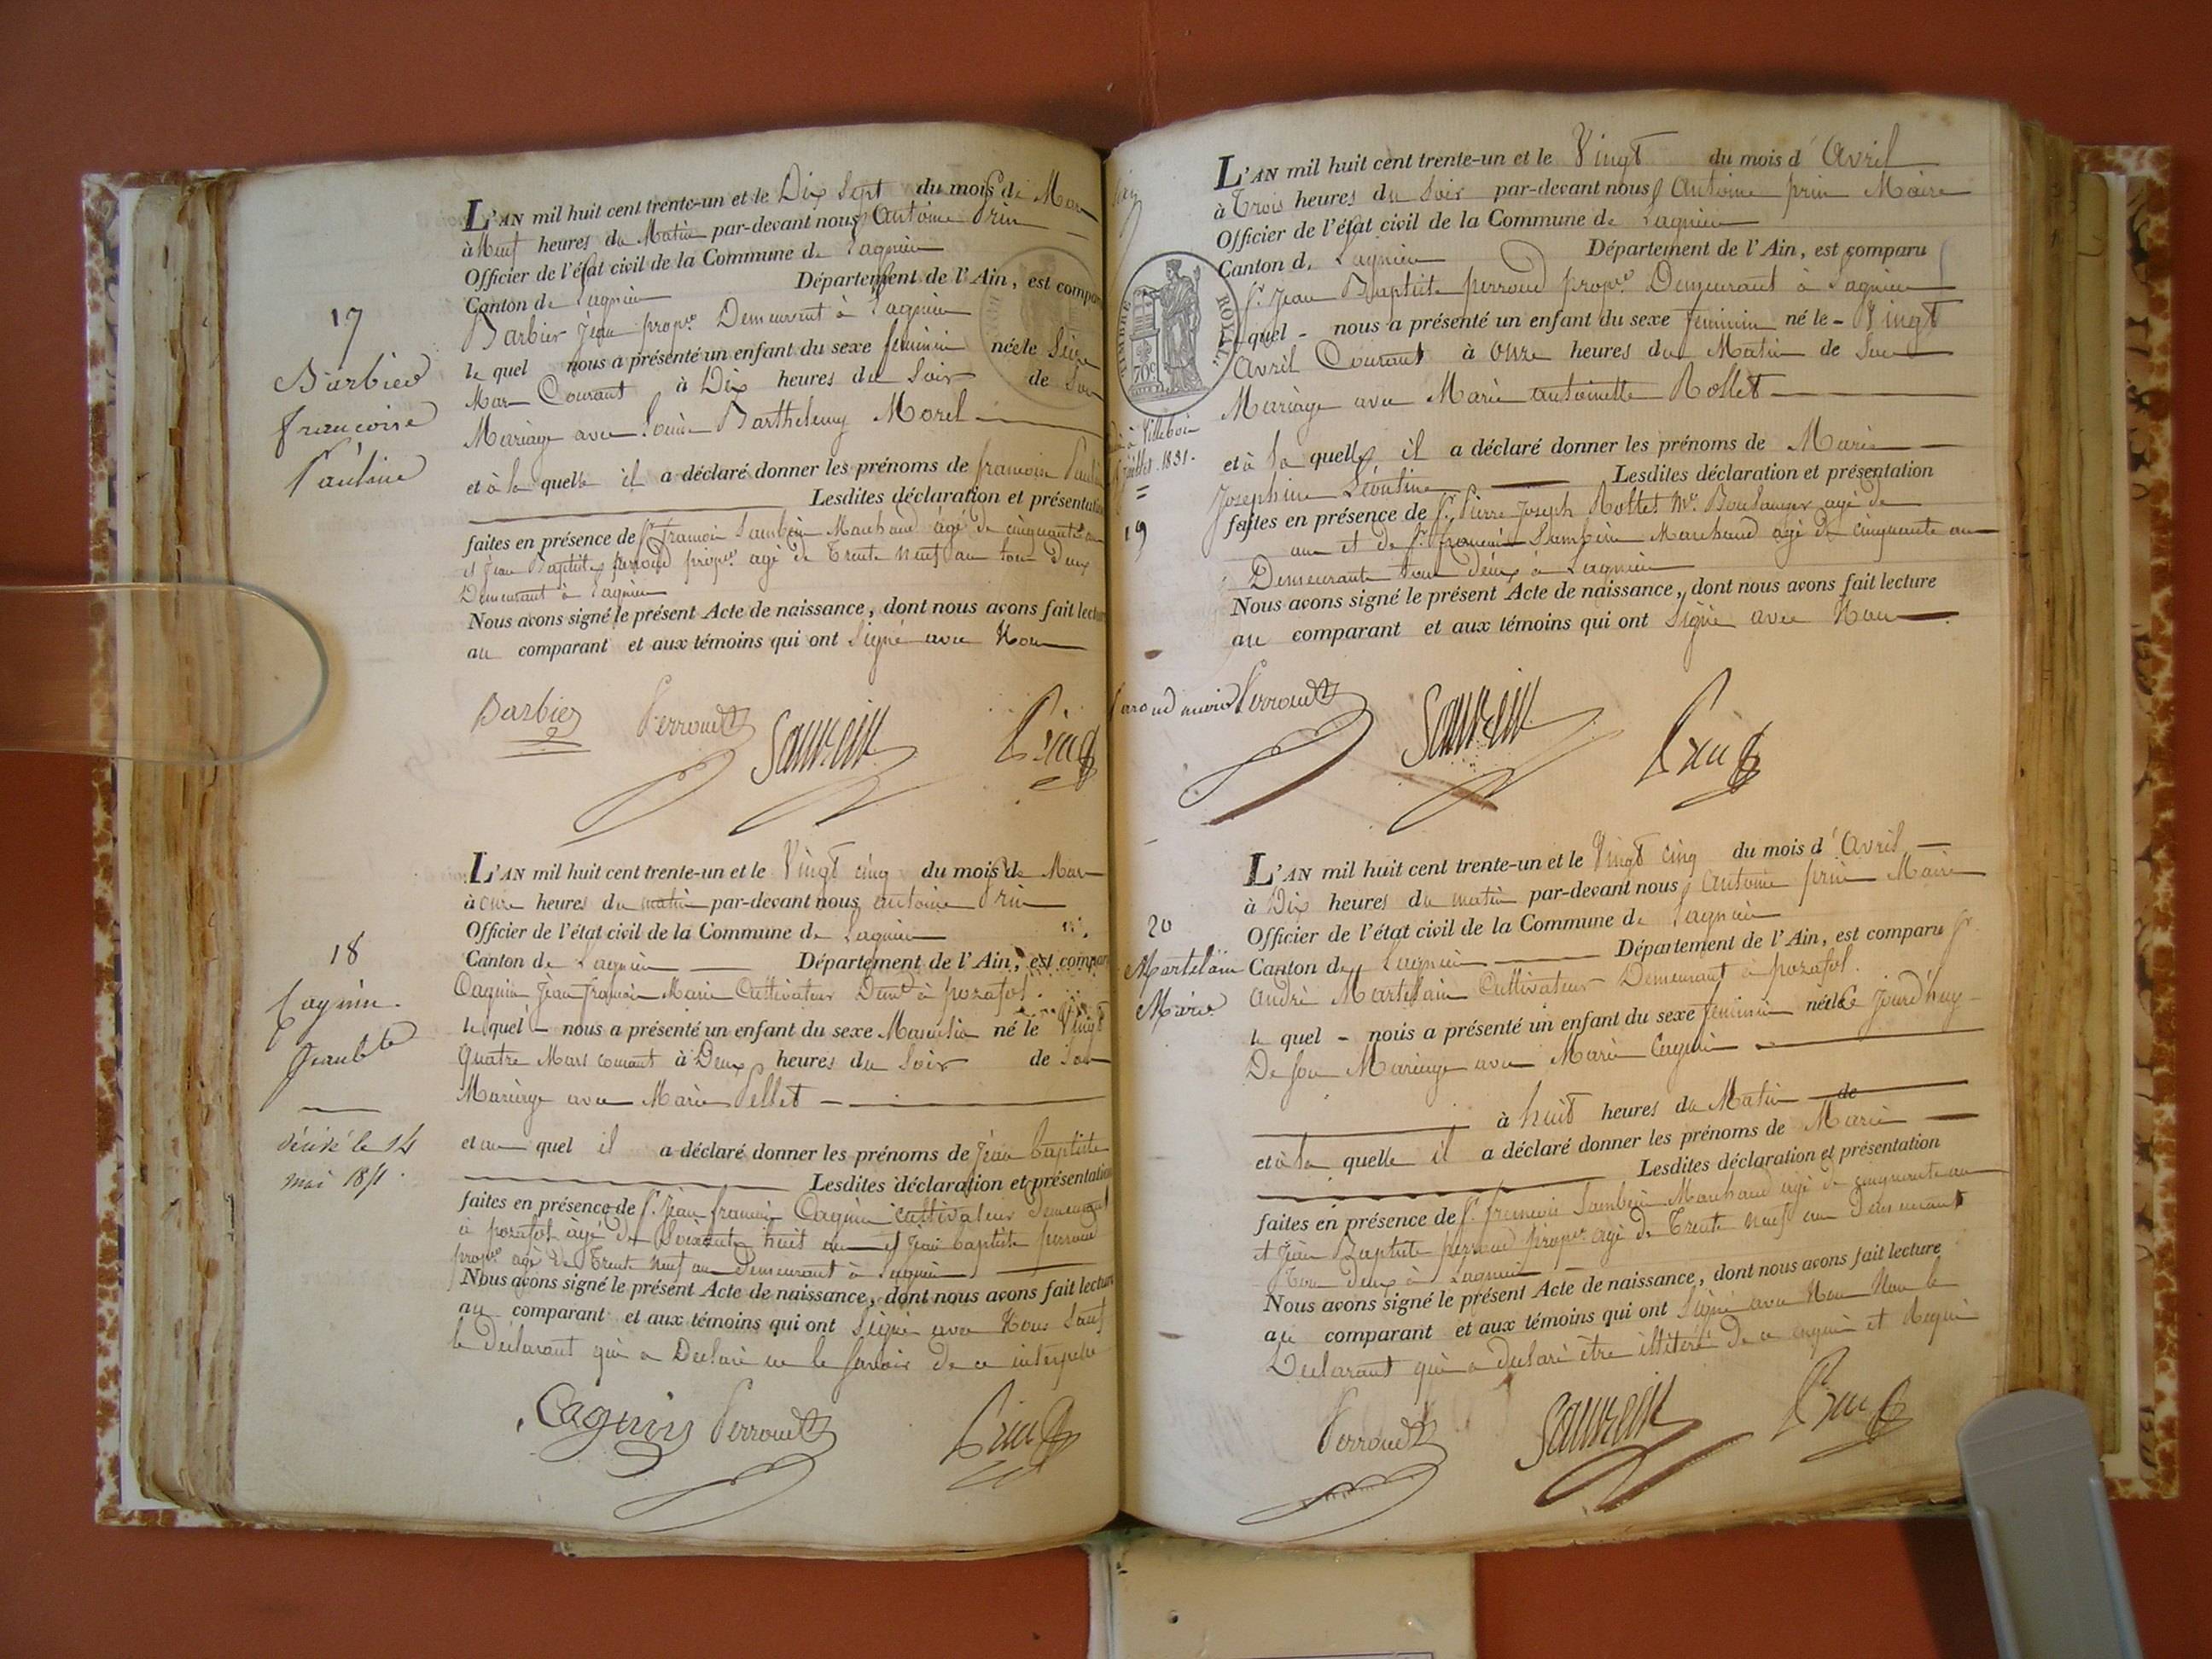 17
Barbier
françoise
Pauline
L'AN mil huit cent trente-un et le Dix Sept du mois de Mars
à Neuf heures du Matin par-devant nous Antoine Prin
Officier de l'état civil de la Commune de Lagnieu
Canton de Lagnieu Département de l'Ain, est compar
Barbier Jean propre Demeurant à Lagnieu
le quel nous a présenté un enfant du sexe feminin née le Seize
Mars Courant à Dix heures du Soir de Son
Mariage avec Louise Barthelemy Morel
et à la quelle il a déclaré donner les prénoms de françoise Pauline
Lesdites déclaration et présentation
faites en présence de Sr françois Marchand âgé de cinquante ans
et Jean Baptiste perroud propre agé de Trente Neuf ans tous Deux
Demeurant à Lagnieu
Nous avons signé le présent Acte de naissance, dont nous avons fait lecture
au comparant et aux témoins qui ont Signé avec Nous
Barbier Perroud Prin
18
Cagnin
Jean Bte
décédé le 14
mai
L'AN mil huit cent trente-un et le Vingt cinq du mois de Mars
à onze heures du matin par-devant nous antoine Prin
Officier de l'état civil de la Commune de Lagnieu
Canton de Lagnieu Département de l'Ain, est compar
Cagnin Jean françois Marie Cultivateur Demt à pozafol
le quel nous a présenté un enfant du sexe Masculin né le Vingt
quatre Mars courant à Deux heures du Soir de Son
Mariage avec Marie Pellet
et au quel il a déclaré donner les prénoms de Jean baptiste
Lesdites déclaration et présentation
faites en présence de Sr Jean françois Cagnin cultivateur Demeurant
à pozafol âgé de Soixante huit ans et Jean baptiste perroud
propre agé de Trente Neuf ans Demeurant à Lagnieu
Nous avons signé le présent Acte de naissance, dont nous avons fait lecture
au comparant et aux témoins qui ont Signé avec Nous Sauf
le Déclarant qui a Déclaré ne le Savoir de ce interpellé
Cagnin Perroud Prin
TIMBRE ROYAL
70c
à Villebois
juillet 1831.
19
Perroud marie
L'AN mil huit cent trente-un et le Vingt du mois d'Avril
à Trois heures du Soir par-devant nous Antoine prin Maire
Officier de l'état civil de la Commune de Lagnieu
Canton de Lagnieu Département de l'Ain, est comparu
Sr Jean Baptiste perroud propre Demeurant à Lagnieu
le quel nous a présenté un enfant du sexe feminin né le Vingt
Avril Courant à Onze heures du Matin de Son
Mariage avec Marie antoinette Rollet
et à la quelle il a déclaré donner les prénoms de Marie
Josephine Léontine Lesdites déclaration et présentation
faites en présence de Sr Pierre Joseph Rollet Md Boulanger agé de
ans et de Sr françois Marchand agé de cinquante ans
Demeurants tous deux à Lagnieu
Nous avons signé le présent Acte de naissance, dont nous avons fait lecture
au comparant et aux témoins qui ont Signé avec Nous
Perroud Prin
20
Martelain
Marie
L'AN mil huit cent trente-un et le Vingt cinq du mois d'Avril
à Dix heures du matin par-devant nous Antoine prin Maire
Officier de l'état civil de la Commune de Lagnieu
Canton de Lagnieu Département de l'Ain, est comparu Sr
André Martelain Cultivateur Demeurant à pozafol
le quel nous a présenté un enfant du sexe feminin née le Jourd'huy
De son Mariage avec Marie Cagnin
à huit heures du Matin de
et à la quelle il a déclaré donner les prénoms de Marie
Lesdites déclaration et présentation
faites en présence de Sr françois Marchand agé de cinquante ans
et Jean Baptiste perroud propre agé de Trente Neuf ans Demeurant
Tous deux à Lagnieu
Nous avons signé le présent Acte de naissance, dont nous avons fait lecture
au comparant et aux témoins qui ont Signé avec Nous Non le
Déclarant qui a déclaré être illitéré de ce enquis et Requis
Perroud Prin